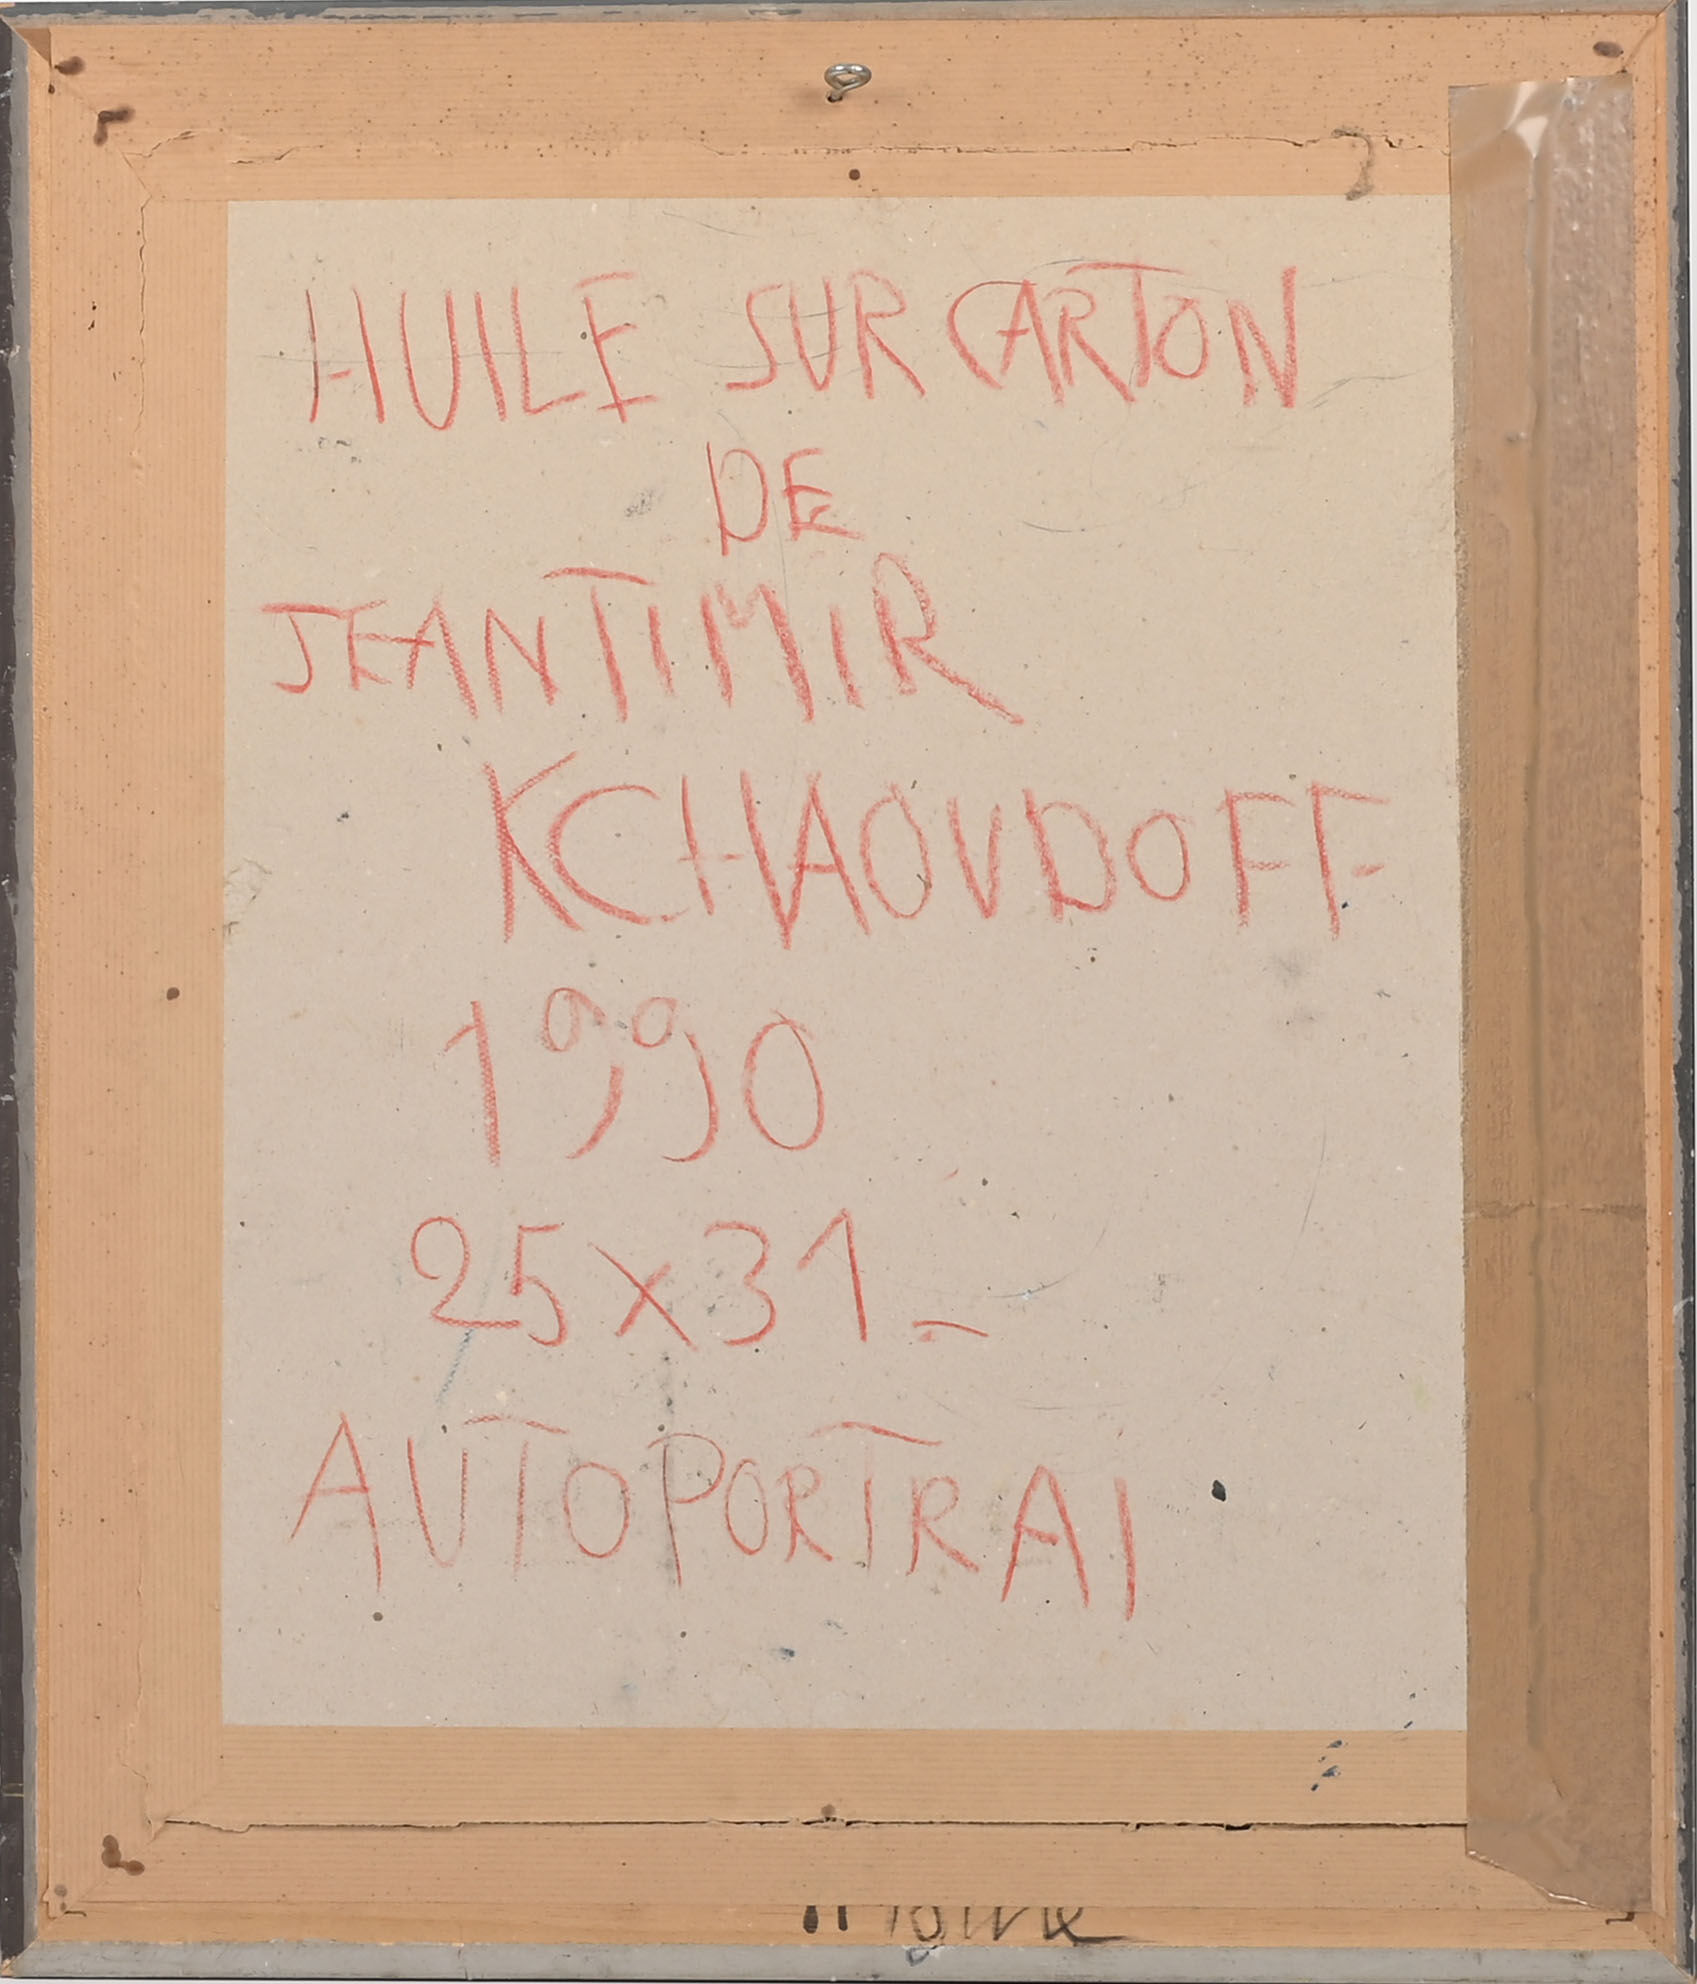 HUILE SUR CARTON
DE
JEANTIMIR
KCHAOUDOFF
1990
25x31_
AUTOPORTRAI